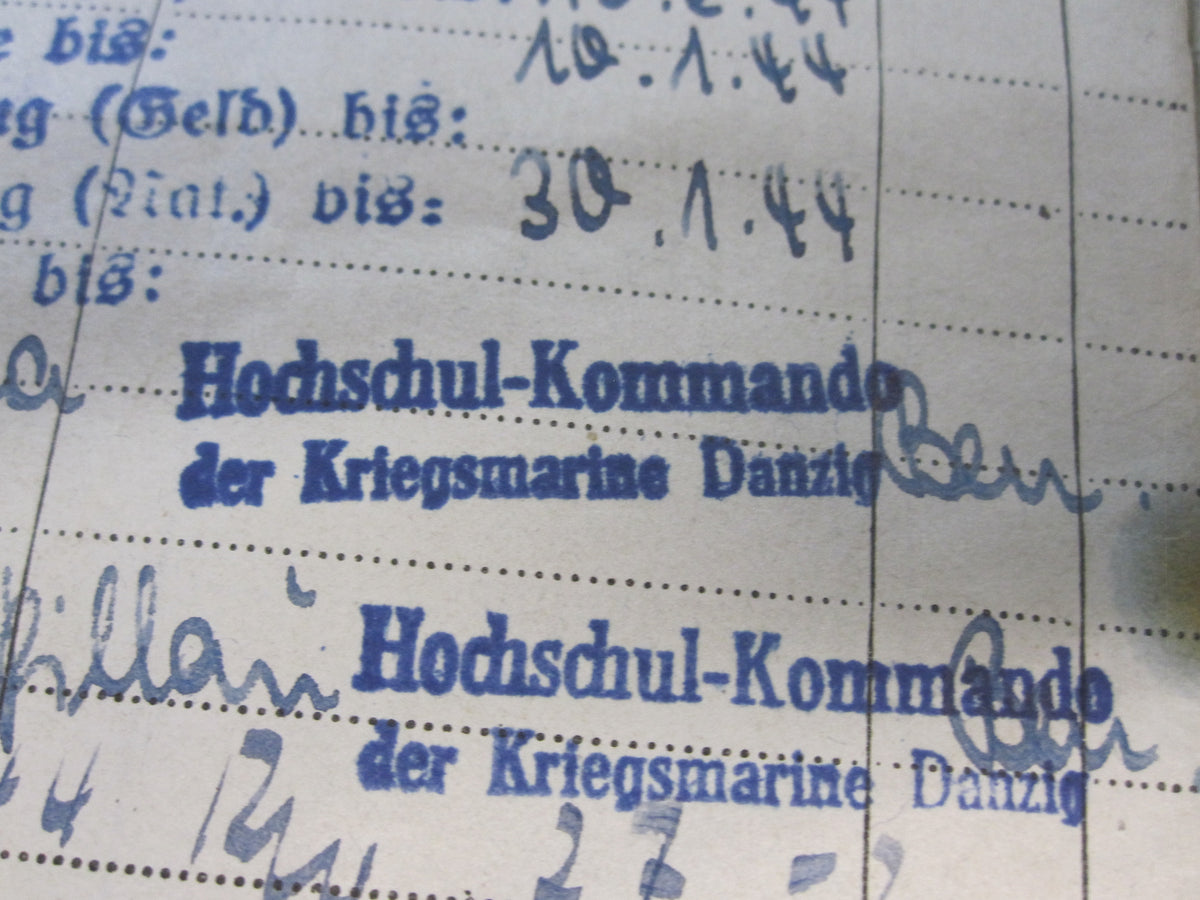 e bis: 10.1.44
ug (Geld) bis:
g (Nat.) bis: 30.1.44
bis:
Hochschul-Kommando
der Kriegsmarine Danzig
Pillau Hochschul-Kommando
der Kriegsmarine Danzig